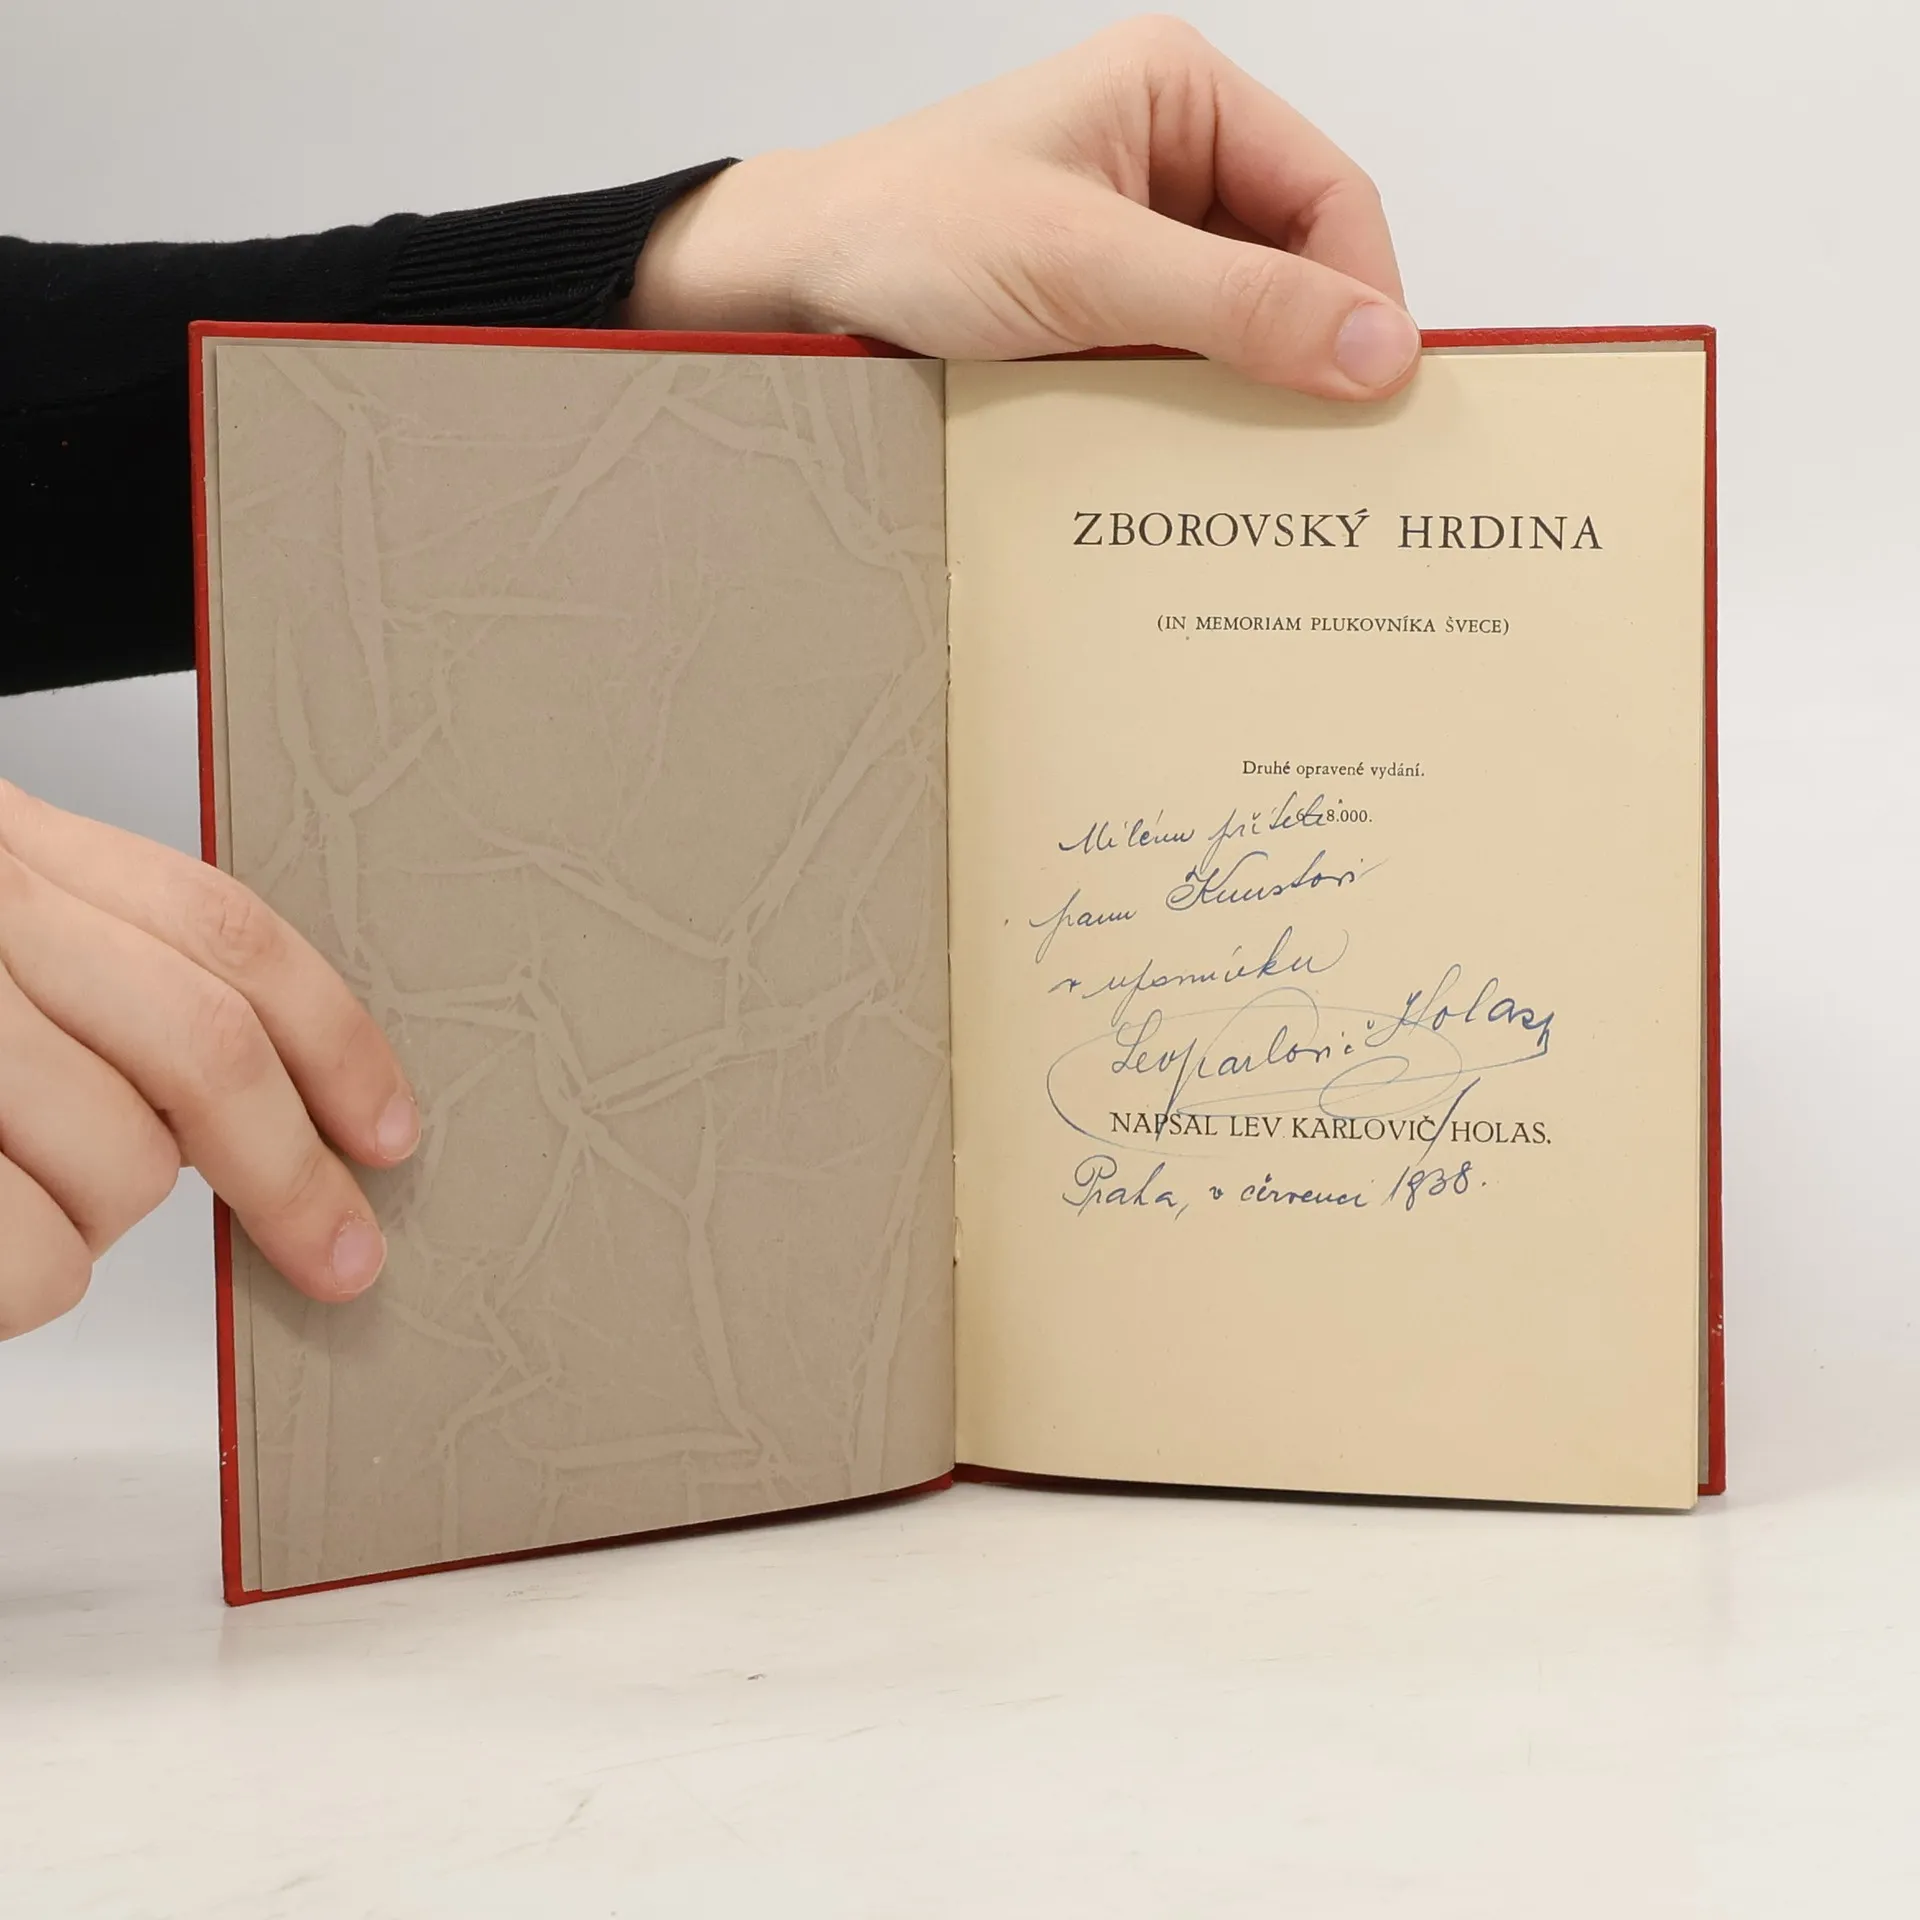 ZBOROVSKÝ HRDINA
(IN MEMORIAM PLUKOVNÍKA ŠVECE)
Druhé opravené vydání.
8.000.
Milému příteli
panu Kunstovi
v upomínku
Lev Karlovič Holas
NAPSAL LEV KARLOVIČ HOLAS.
Praha, v červenci 1938.